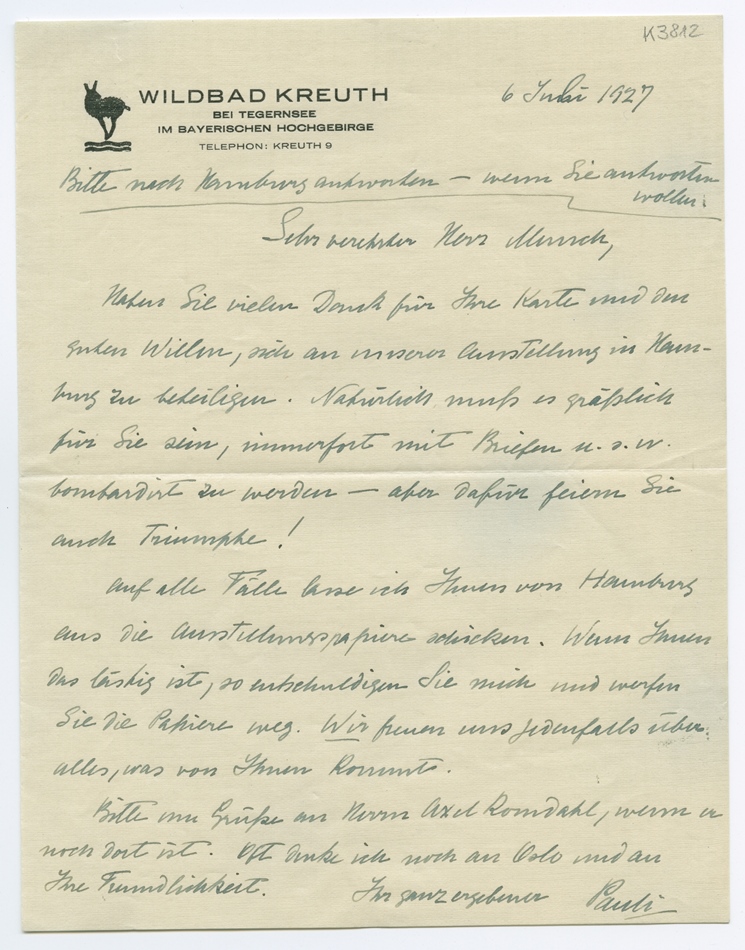 K3812
WILDBAD KREUTH
BEI TEGERNSEE
IM BAYERISCHEN HOCHGEBIRGE
TELEPHON: KREUTH 9
6 Juli 1927
Bitte nach Hamburg antworten – wenn Sie antworten
wollen.
Sehr verehrter Herr Munch,
Haben Sie vielen Dank für Ihre Karte und den
guten Willen, sich an unserer Ausstellung in Ham-
burg zu beteiligen. Natürlich muß es gräßlich
für Sie sein, immerfort mit Briefen u. s. w.
bombardirt zu werden – aber dafür feiern Sie
auch Triumphe!
Auf alle Fälle lasse ich Ihnen von Hamburg
aus die Ausstellungspapiere schicken. Wenn Ihnen
das lästig ist, so entschuldigen Sie mich und werfen
Sie die Papiere weg. Wir freuen uns jedenfalls über
alles, was von Ihnen kommt.
Bitte um Grüße an Herrn Axel Romdahl, wenn er
noch dort ist. Oft denke ich noch an Oslo und an
Ihre Freundlichkeit.
Ihr ganz ergebener Pauli